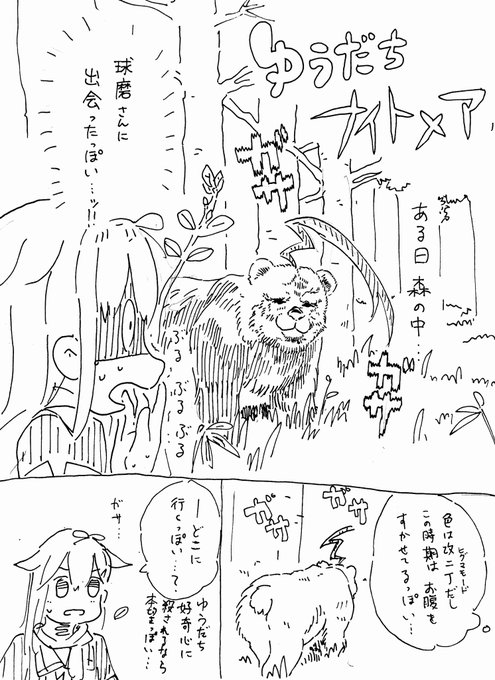 ゆうだち
ナイトメア
ある日 森の中…
ガサ
ガサ
球磨さんに
出会ったっぽい…ッ!!
ぶる
ぶる
ぶる
ヒグマモード
色は改二丁だし
この時期は お腹を
すかせてるっぽい…
ガサ
ガサ
ーどこに
行くっぽい…?
ゆうだち
好奇心に
殺されるなら
本望っぽい…
ガサ…